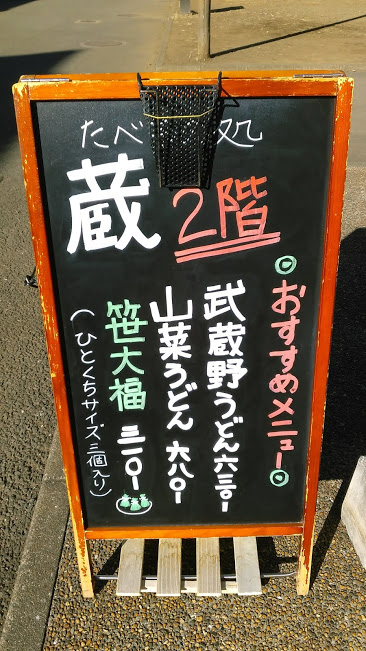 たべ処
蔵
2階
おすすめメニュー
武蔵野うどん六三〇ー
山菜うどん六八〇ー
笹大福三一〇ー
(ひとくちサイズ三個入り)